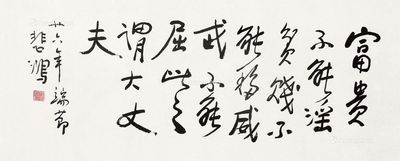 富貴
不能淫
貧賤不
能移威
武不能
屈此之
謂大丈
夫
廿六年端節
悲鴻